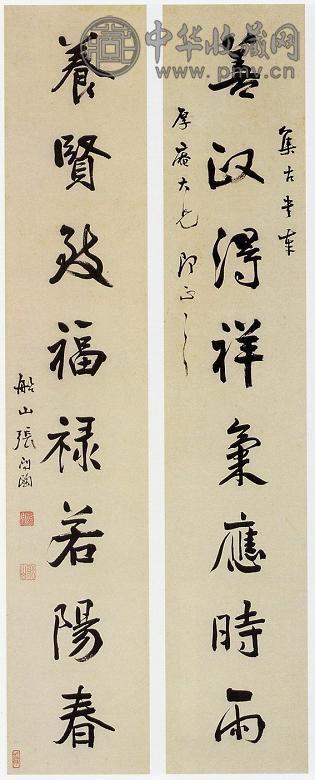 中华收藏网
www.pmv.cn
集古書奉
善政得祥氣應時雨
厚庵大兄即正
養賢致福禄若陽春
船山張問陶